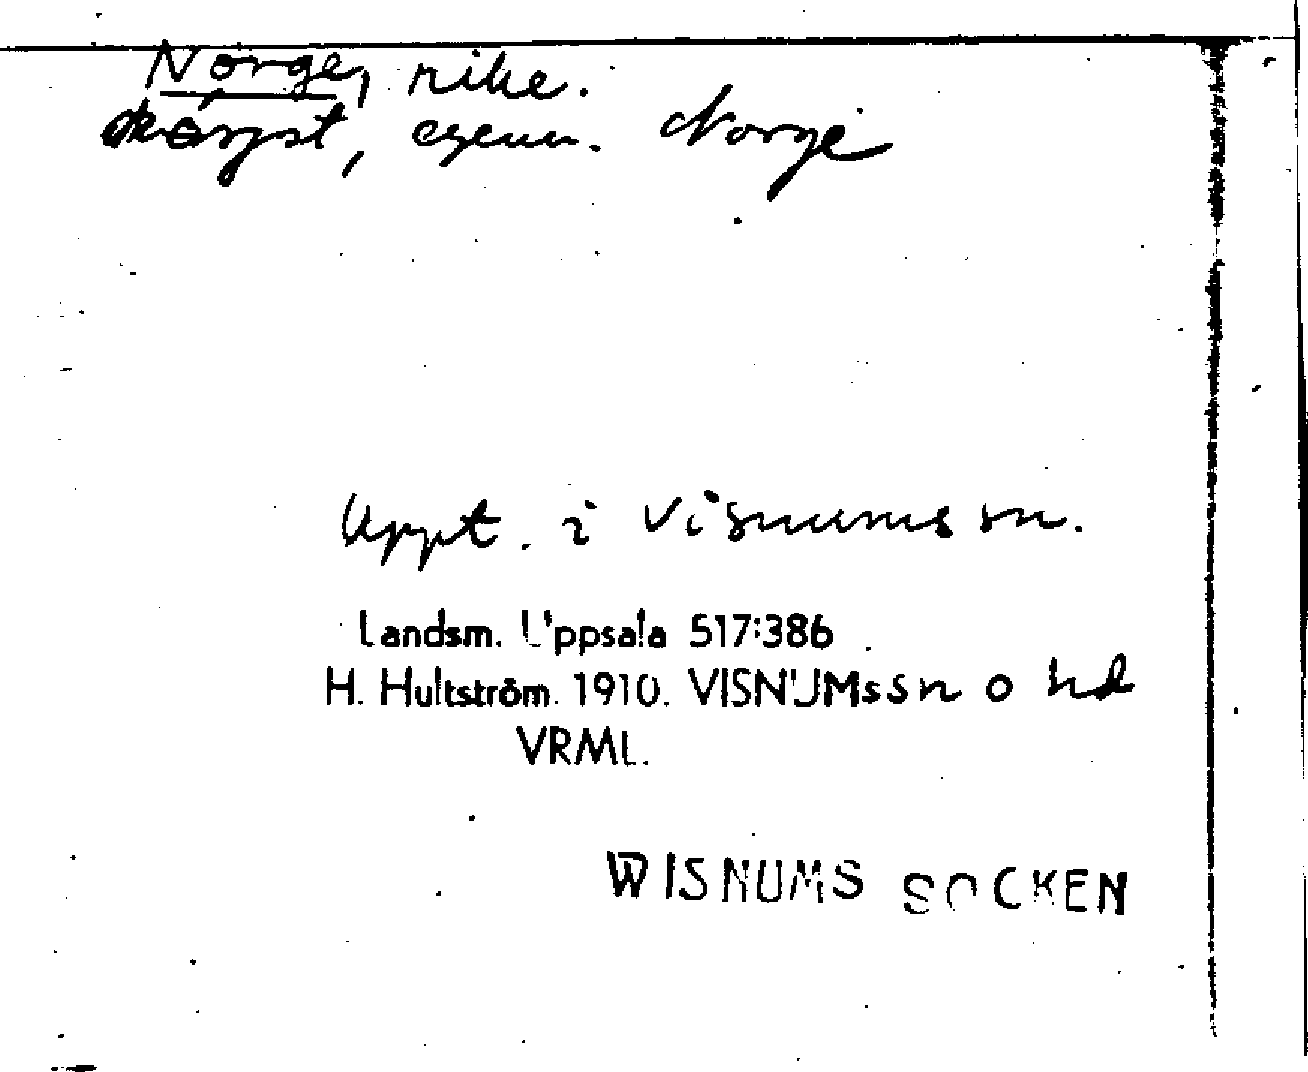 Norge, rike.
egenn. Norge
Uppt. i Visnums sn.
Landsm. Uppsala 517:386
H. Hultström. 1910. VISNUMs sn o hd
VRML.
WISNUMS SOCKEN